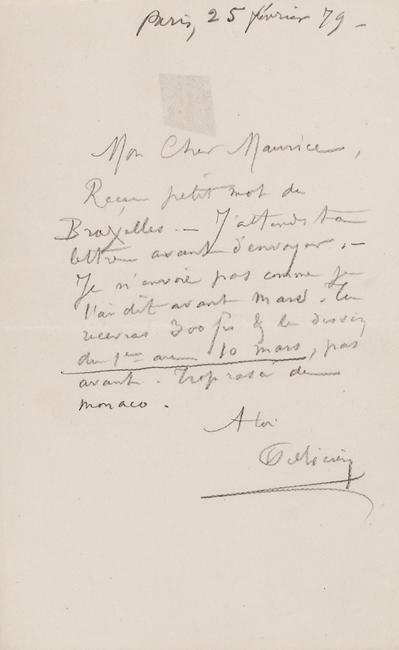 Paris, 25 février 79 _
Mon Cher Maurice,
Reçu petit mot de
Bruxelles. _ J'attends ta
lettre avant d'envoyer. _
Je n'envoie pas comme je
l'ai dit avant mars. Tu
recevras 300 frs & le dessin
du 1er au 10 mars, pas
avant. Trop rasé de
monaco.
A toi
Félicien